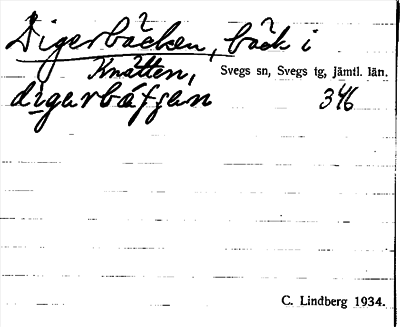 Digerbäcken, bäck i
Knätten, Svegs sn, Svegs tg, jämtl. län.
346
C. Lindberg 1934.